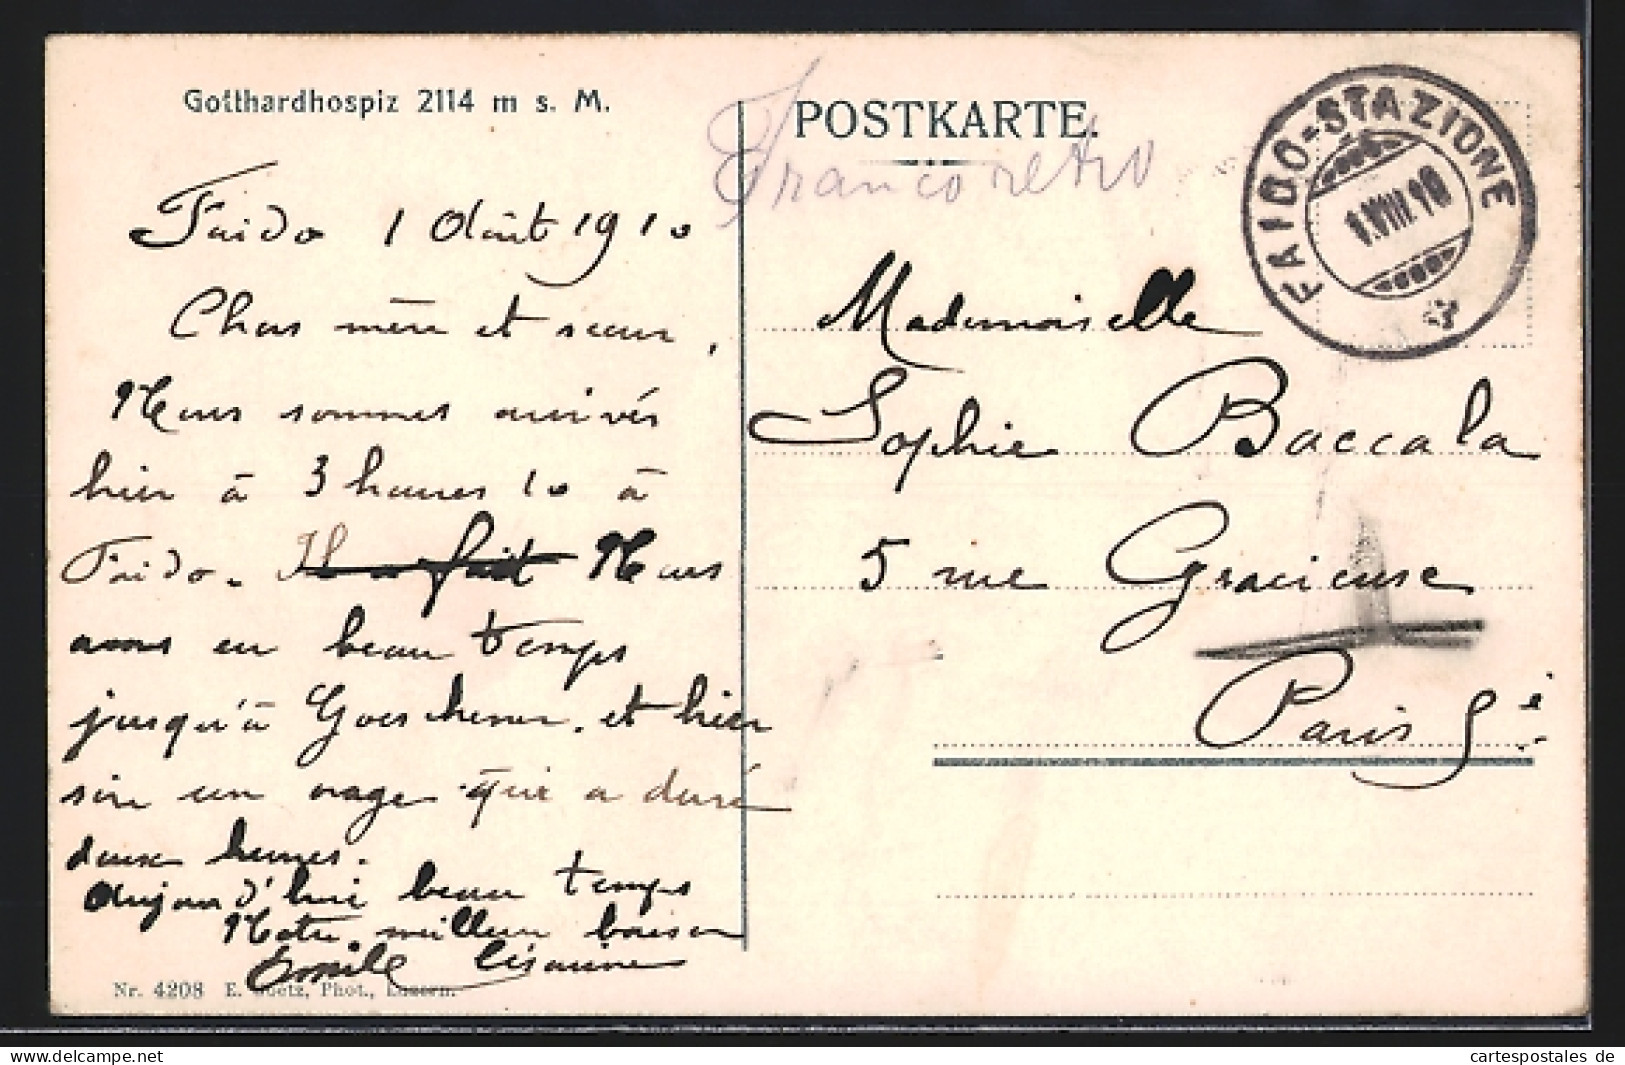 Gotthardhospiz 2114 m s. M.
POSTKARTE.
Franco retro
FAIDO-STAZIONE
1.VIII.10
Faido 1 Août 1910
Chers mère et sœur,
Nous sommes arrivés
hier à 3 heures 10 à
Faido. Il a fait Nous
avons eu beau temps
jusqu'à Goeschenen. et hier
soir un orage qui a duré
deux heures.
Aujourd'hui beau temps
Notre meilleur baiser
Emile Césarine
Nr. 4208 E. Goetz, Phot., Luzern.
Mademoiselle
Sophie Baccala
5 rue Gracieuse
Paris 5e
cartespostales de